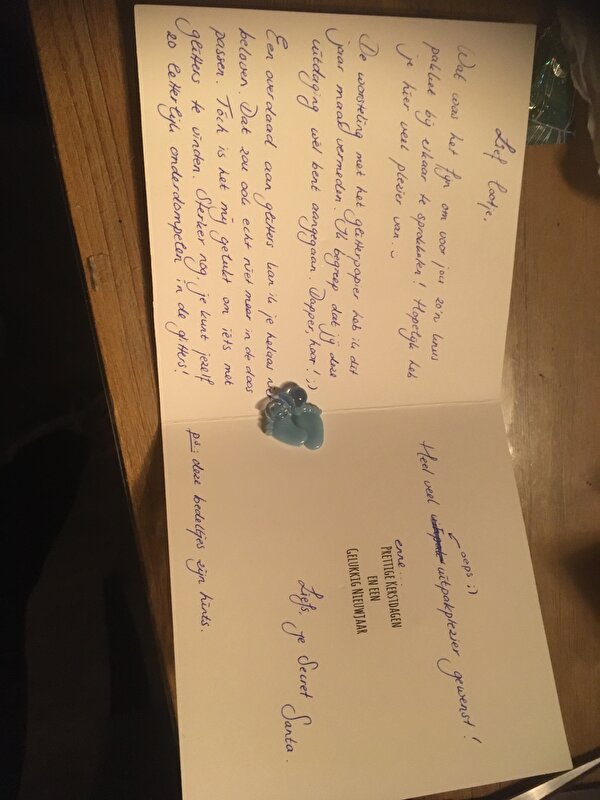 Lief lootje,
Wat was het fijn om voor jou zo'n knus
pakket bij elkaar te sprokkelen! Hopelijk heb
je hier veel plezier van. :)
De worsteling met het glitterpapier heb ik dit
jaar maar vermeden. Ik begreep dat jij deze
uitdaging wél bent aangegaan. Dapper, hoor! ;)
Een overdaad aan glitters kan ik je helaas
beloven. Dat zou ook echt niet meer in de doos
passen. Tóch is het mij gelukt om iéts met
glitters te vinden. Sterker nog, je kunt jezelf
zo letterlijk onderdompelen in de glitters!
oeps ;)
Heel veel uitpakplezier gewenst!
enne...
PRETTIGE KERSTDAGEN
EN EEN
GELUKKIG NIEUWJAAR
Liefs, je Secret Santa.
ps: deze bedeltjes zijn hints.